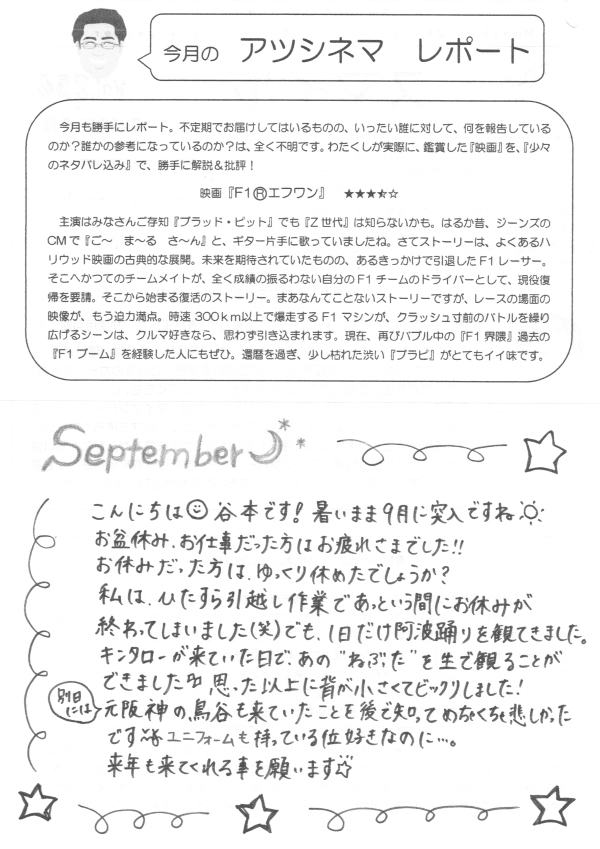 今月の アツシネマ レポート
今月も勝手にレポート。不定期でお届けしてはいるものの、いったい誰に対して、何を報告している
のか？誰かの参考になっているのか？は、全く不明です。わたくしが実際に、鑑賞した『映画』を、『少々
のネタバレ込み』で、勝手に解説＆批評！
映画『F1Ⓡエフワン』 ★★★⯪☆
主演はみなさんご存知『ブラッド・ピット』でも『Z世代』は知らないかも。はるか昔、ジーンズの
CMで『ご～ ま～る さ～ん』と、ギター片手に歌っていましたね。さてストーリーは、よくあるハ
リウッド映画の古典的な展開。未来を期待されていたものの、あるきっかけで引退したF1レーサー。
そこへかつてのチームメイトが、全く成績の振るわない自分のF1チームのドライバーとして、現役復
帰を要請。そこから始まる復活のストーリー。まあなんてことないストーリーですが、レースの場面の
映像が、もう迫力満点。時速300km以上で爆走するF1マシンが、クラッシュ寸前のバトルを繰り
広げるシーンは、クルマ好きなら、思わず引き込まれます。現在、再びバブル中の『F1界隈』過去の
『F1ブーム』を経験した人にもぜひ。還暦を過ぎ、少し枯れた渋い『ブラピ』がとてもイイ味です。
September
こんにちは☺谷本です！暑いまま9月に突入ですね☼
お盆休み、お仕事だった方はお疲れさまでした!!
お休みだった方は、ゆっくり休めたでしょうか？
私は、ひたすら引越し作業であっという間にお休みが
終わってしまいました(笑)でも、1日だけ阿波踊りを観てきました。
キンタローが来ていた日で、あの"ねぶた"を生で観ることが
できました 思った以上に背が小さくてビックリしました！
別日には 元阪神の鳥谷も来ていたことを後で知ってめちゃくちゃ悲しかった
です ユニフォームも持っている位好きなのに…。
来年も来てくれる事を願います☆